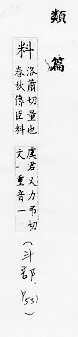 類篇
料
洛蕭切量也
春秋傳臣料
虞君又力弔切
文一重音一
(斗部,